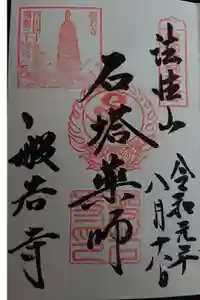 法性山
石塔薬師
般若寺
令和元年
八月十六日